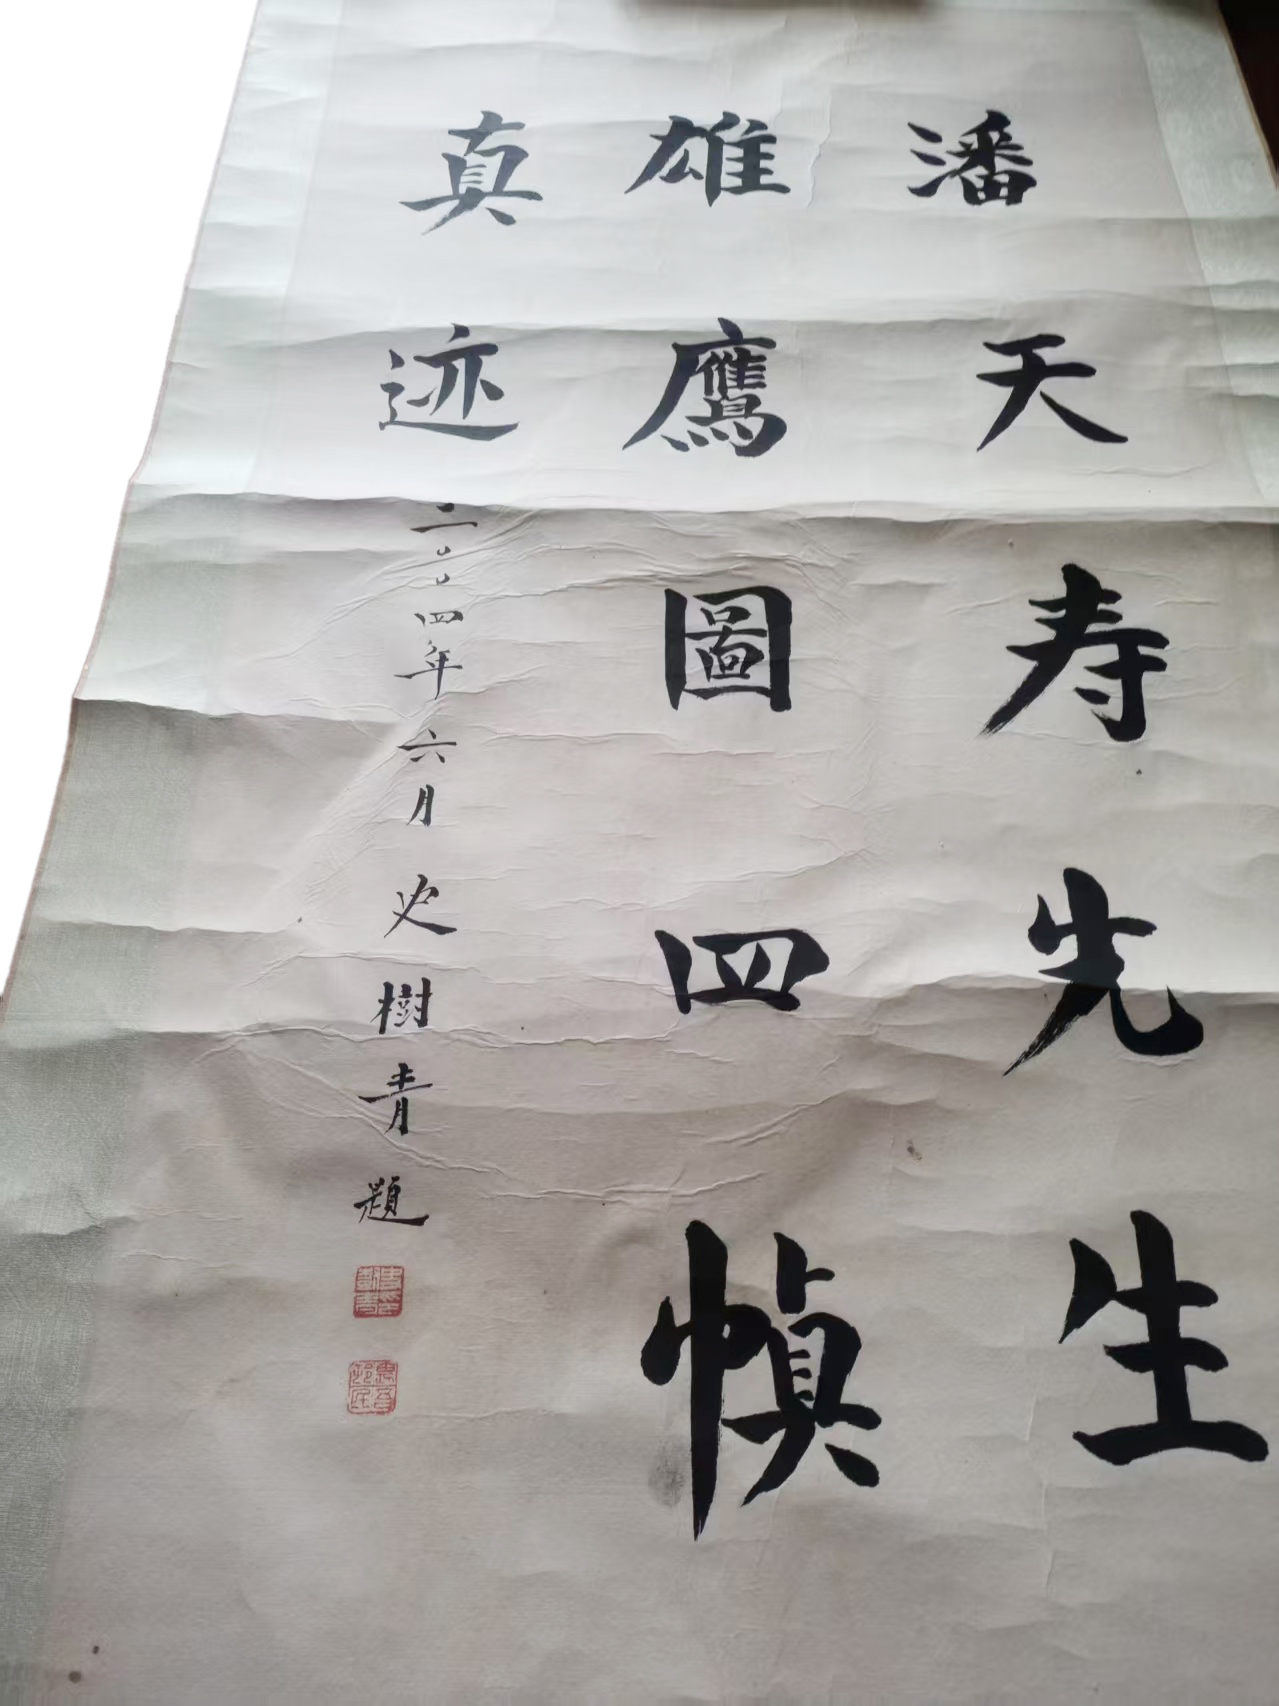 潘天寿先生
雄鹰圖四幀
真迹
二〇〇四年六月史樹青題